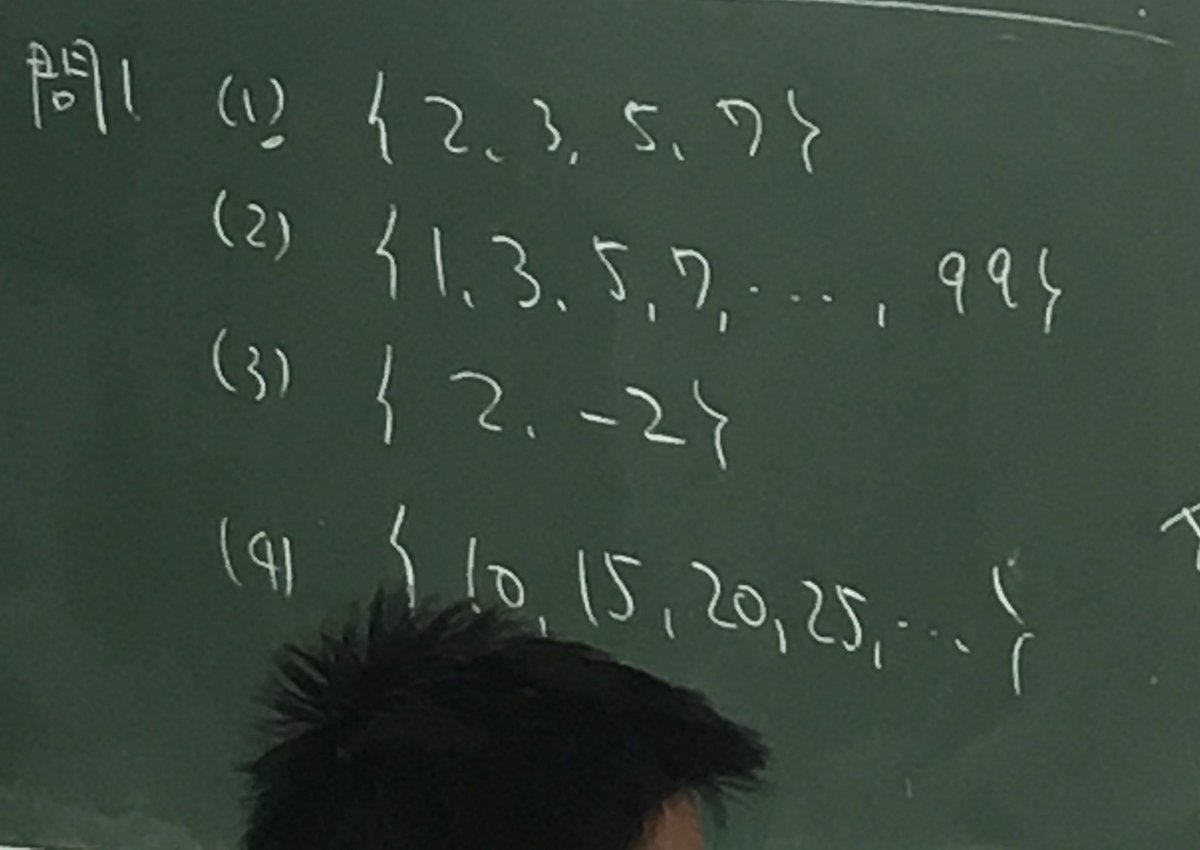 問1 (1) { 2, 3, 5, 7}
(2) {1, 3, 5, 7, ..., 99}
(3) { 2, -2}
(4) { 10, 15, 20, 25, ... }